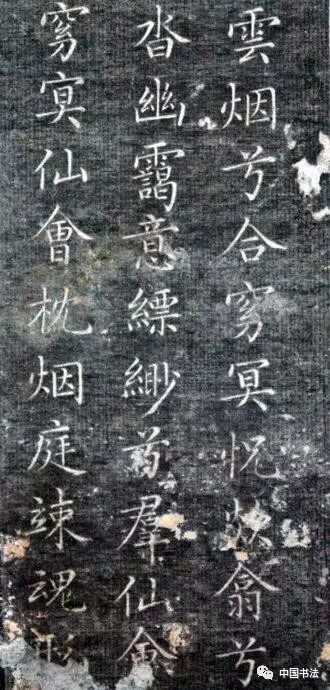 雲烟兮合窈冥怳欻翕兮
沓幽靄意縹緲兮羣仙會
窈㝠仙會枕烟庭竦魂形
中国书法